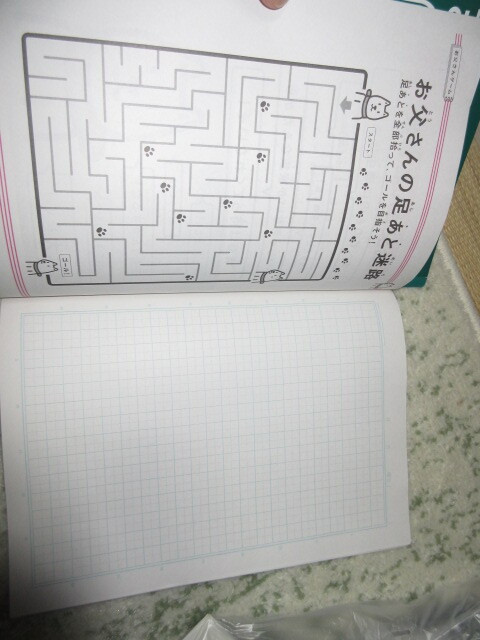 お父さんの足あと迷路
足あとを全部拾って、ゴールを目指そう！
スタート
ゴール！